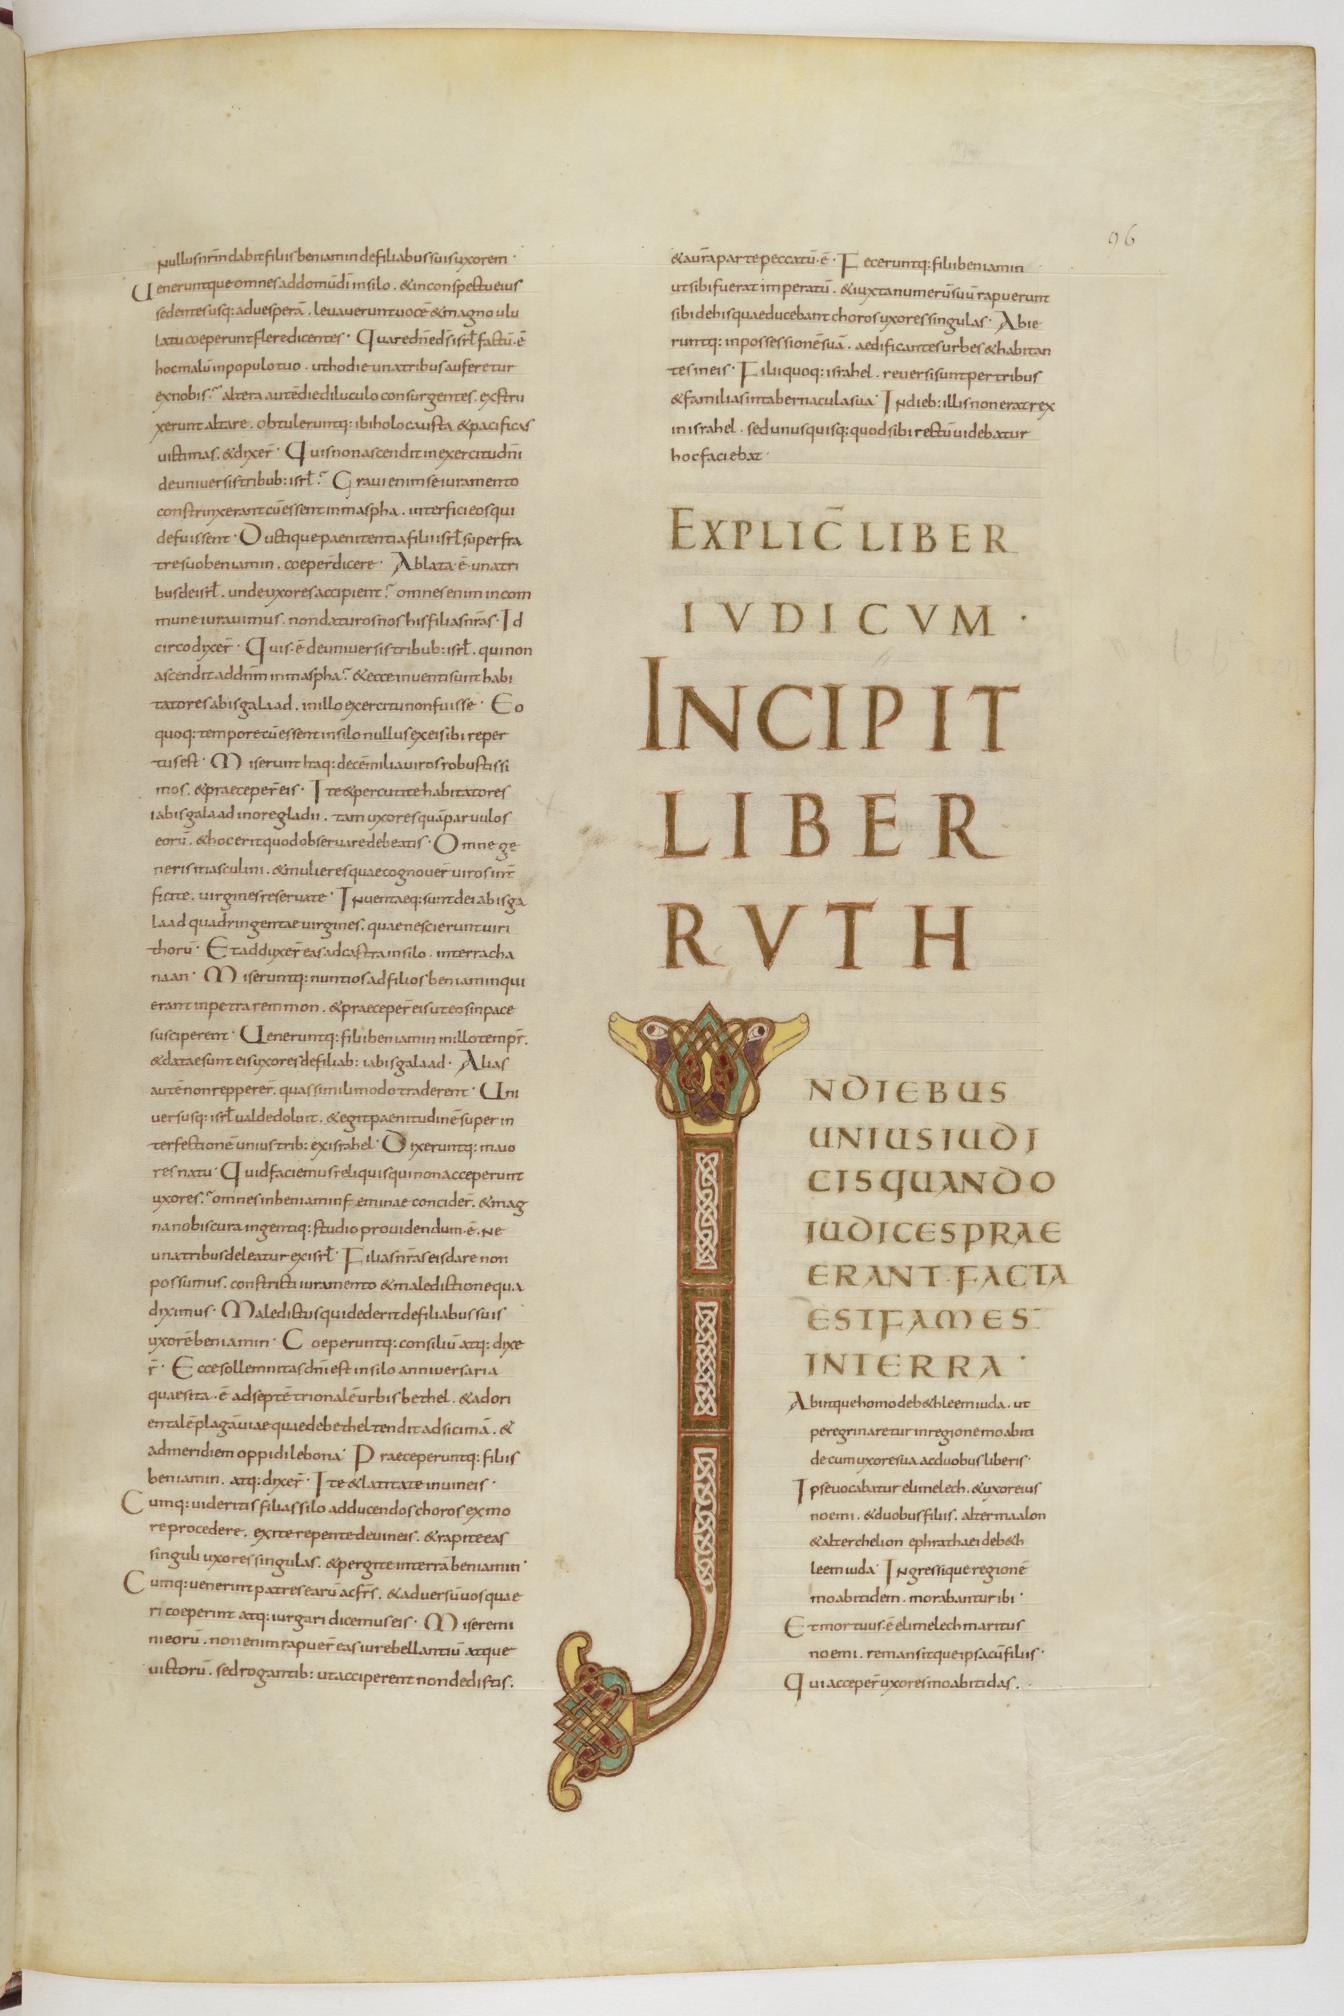 nullus nr̄m dabit filiis beniamin de filiabus suis uxorem ·
Ueneruntque omnes ad domū dī in silo . & in conspectu eius
sedentes usq: ad uesperā . leuauerunt uocē & magno ulu
latu coeperunt flere dicentes · Quare dn̄e dś isrł factū · ē
hoc malū in populo tuo . ut hodie una tribus auferetur
ex nobis ; altera autē die diluculo consurgentes . exstru
xerunt altare . obtuleruntq: ibi holocausta & pacificas
uictimas . & dixer̄ · Quis non ascendit in exercitu dn̄i
de uniuersis tribub: isrł ; Graui enim se iuramento
constrinxerant cū essent in maspha . interfici eos qui
defuissent · Ductique paenitentia filii isrł super fra
tre suo beniamin . coeper̄ dicere · Ablata · ē · una tri
bus de isrł . unde uxores accipient ; omnes enim in com
mune iurauimus . non daturos nos his filias nr̄as · Id
circo dixer̄ · Quis · ē de uniuersis tribub: isrł . qui non
ascendit ad dn̄m in maspha ; & ecce inuenti sunt habi
tatores iabis galaad . in illo exercitu non fuisse · Eo
quoq: tempore cū essent in silo nullus ex eis ibi reper
tus est · Miserunt itaq: decē milia uiros robustissi
mos . & praeceper̄ eis · Ite & percutite habitatores
iabis galaad in ore gladii . tam uxores quā paruulos
eorū . & hoc erit quod obseruare debeatis · Omne ge
neris masculini . & mulieres quae cognouer̄ uiros int̄
ficite . uirgines reseruate · Inuentaeq: sunt de iabis ga
laad quadringentae uirgines . quae nescierunt uiri
thorū · Et adduxer̄ eas ad castra in silo . in terra cha
naan · Miseruntq: nuntios ad filios beniamin qui
erant in petra remmon . & praeceper̄ eis ut eos in pace
susciperent · Ueneruntq: filii beniamin in illo tempr̄ .
& datae sunt eis uxores de filiab: iabis galaad · Alias
autē non reppereř . quas simili modo traderent · Uni
uersusq: isrł ualde doluit . & egit paenitudinē super in
terfectione unius trib: ex israhel · Dixeruntq: maio
res natu · Quid faciemus reliquis qui non acceperunt
uxores ; omnes in beniamin feminae concider̄ . & mag
na nobis cura ingentiq: studio prouidendum · ē . ne
una tribus deleatur ex isrł · Filias nr̄as eis dare non
possumus . constricti iuramento & maledictione qua
diximus · Maledictus qui dederit de filiabus suis
uxorē beniamin · Coeperuntq: consiliū atq: dixe
r̄ · Ecce sollemnitas dn̄i est in silo anniuersaria
quae sita · ē ad septētrionalē urbis bethel . & ad ori
entalē plagā uiae quae de bethel tendit ad sicimā . &
ad meridiem oppidi lebona · Praeceperuntq: filiis
beniamin . atq: dixer̄ · Ite & latitate in uineis ·
Cumq: uideritis filias silo ad ducendos choros ex mo
re procedere . exite repente de uineis . & rapite eas
singuli uxores singulas . & pergite in terrā beniamin ·
Cumq: uenerint patres earū ac fr̄s . & aduersū uos quae
ri coeperint atq: iurgari dicemus eis · Miseremi
ni eorū . non enim rapuer̄ eas iure bellantiū atque
uictorū . sed rogantib: ut acciperent non dedistis .
96
& a ur̄a parte peccatū · ē · Feceruntq: filii beniamin
ut sibi fuerat imperatū . & iuxta numerū suū rapuerunt
sibi de his quae ducebant choros uxores singulas · Abie
runtq: in possessionē suā . aedificantes urbes & habitan
tes in eis · Filii quoq: israhel . reuersi sunt per tribus
& familias in tabernacula sua · In dieb: illis non erat rex
in israhel . sed unusquisq: quod sibi rectū uidebatur
hoc faciebat ·
EXPLIC̄ LIBER
IVDICVM ·
INCIPIT
LIBER
RVTH
IN DIEBUS
UNIUS IUDI
CIS QUANDO
IUDICES PRAE
ERANT · FACTA
EST FAMES
IN TERRA ·
Abiitque homo de b&hleem iuda . ut
peregrinaretur in regione moabiti
de cum uxore sua ac duobus liberis ·
Ipse uocabatur elimelech . & uxor eius
noemi . & duobus filiis . alter maalon
& alter chelion ephrathaei de b&h
leem iuda · Ingressique regionē
moabitidem . morabantur ibi ·
Et mortuus · ē elimelech maritus
noemi . remansitque ipsa cū filiis ·
Qui acceper̄ uxores moabitidas .